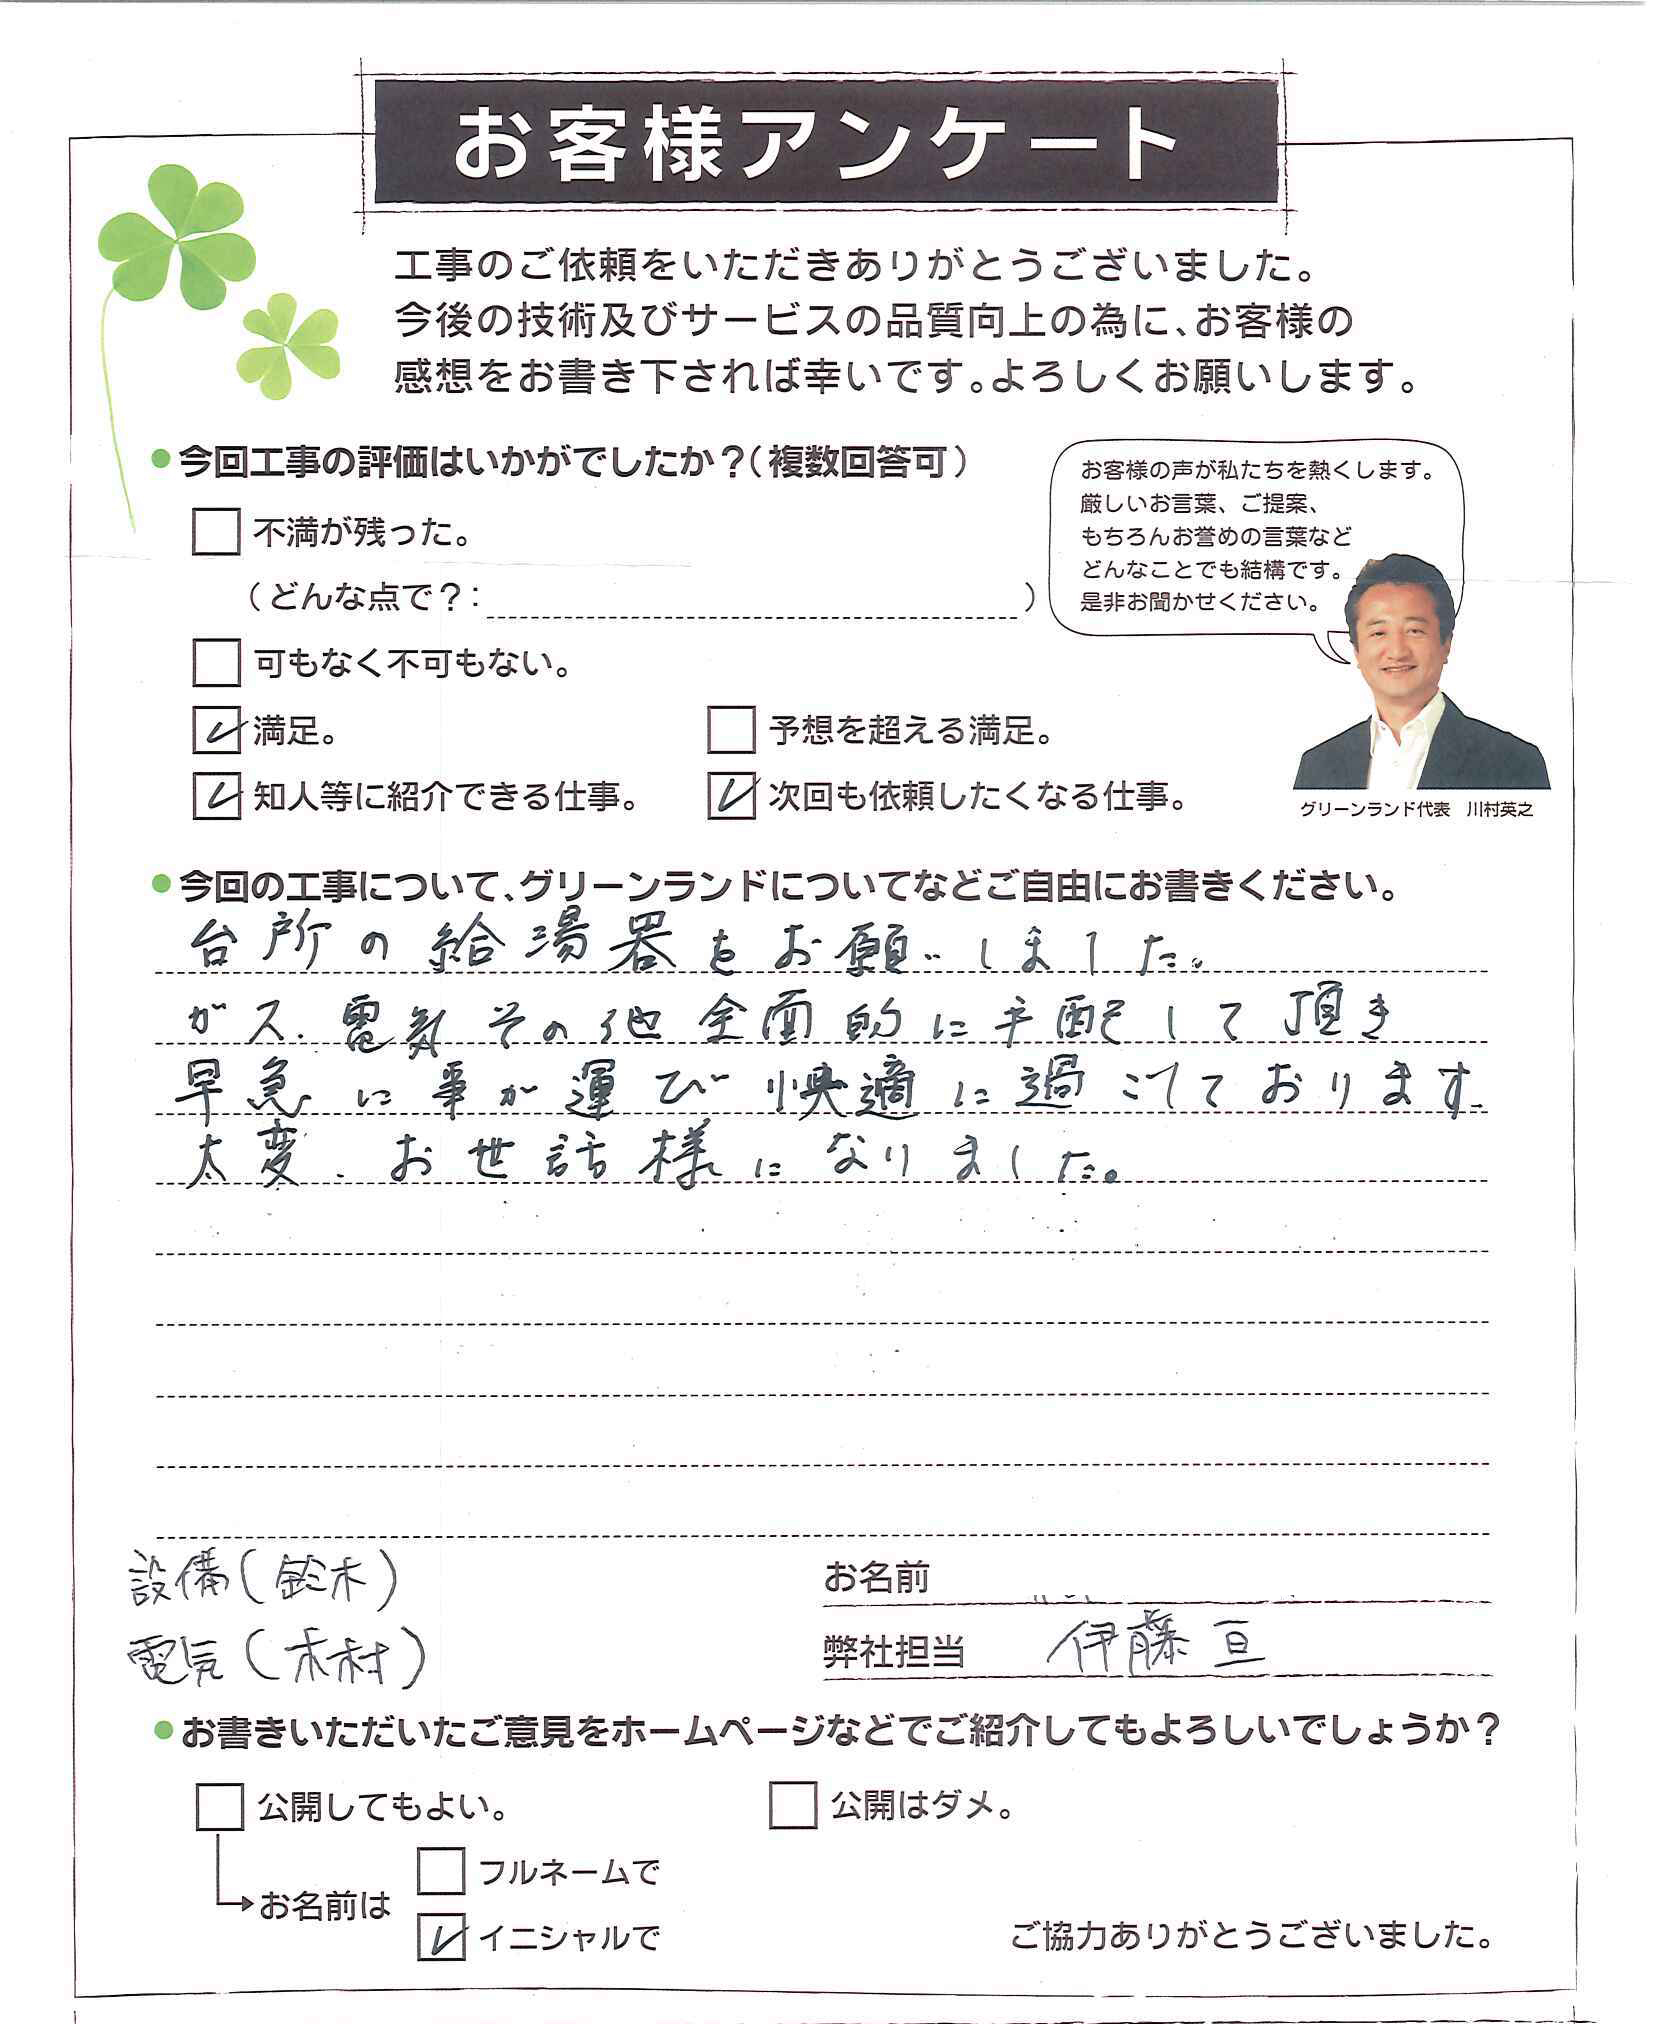 お客様アンケート
工事のご依頼をいただきありがとうございました。
今後の技術及びサービスの品質向上の為に、お客様の
感想をお書き下されば幸いです。よろしくお願いします。
今回工事の評価はいかがでしたか?(複数回答可)
不満が残った。
(どんな点で?: )
可もなく不可もない。
満足。
予想を超える満足。
知人等に紹介できる仕事。
次回も依頼したくなる仕事。
お客様の声が私たちを熱くします。
厳しいお言葉、ご提案、
もちろんお誉めの言葉など
どんなことでも結構です。
是非お聞かせください。
グリーンランド代表 川村英之
今回の工事について、グリーンランドについてなどご自由にお書きください。
台所の給湯器をお願いしました。
ガス.電気その他全面的に手配して頂き
早急に事が運び快適に過こしております.
太変.お世話様になりました。
設備(鈴木)
電気(木村)
お名前
弊社担当 伊藤亘
お書きいただいたご意見をホームページなどでご紹介してもよろしいでしょうか?
公開してもよい。
公開はダメ。
お名前は
フルネームで
イニシャルで
ご協力ありがとうございました。